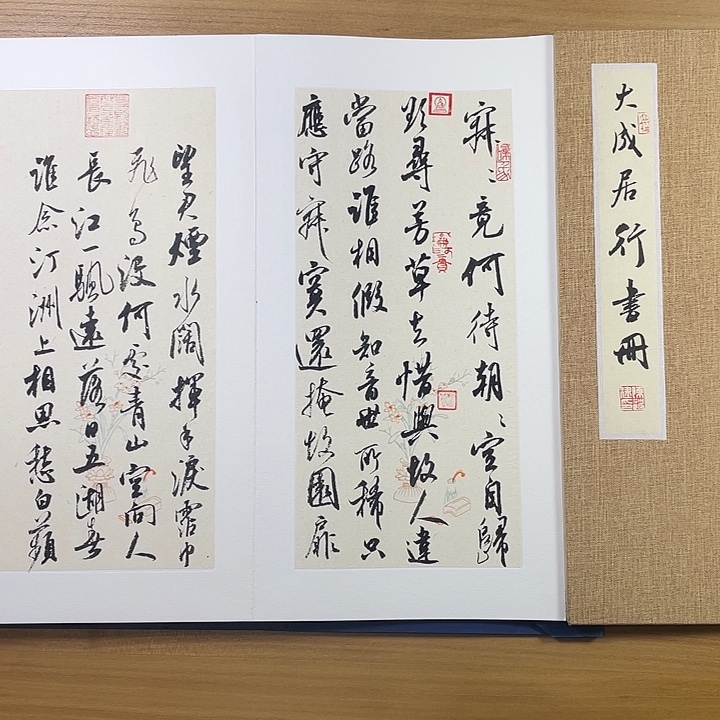 大成居行書冊
寂〻竟何待朝〻空自歸
欲尋芳草去惜與故人違
當路誰相假知音世所稀只
應守寂寞還掩故園扉
望君煙水闊揮手淚霑巾
飛鳥沒何處青山空向人
長江一颿遠落日五湖春
誰念汀洲上相思愁白蘋